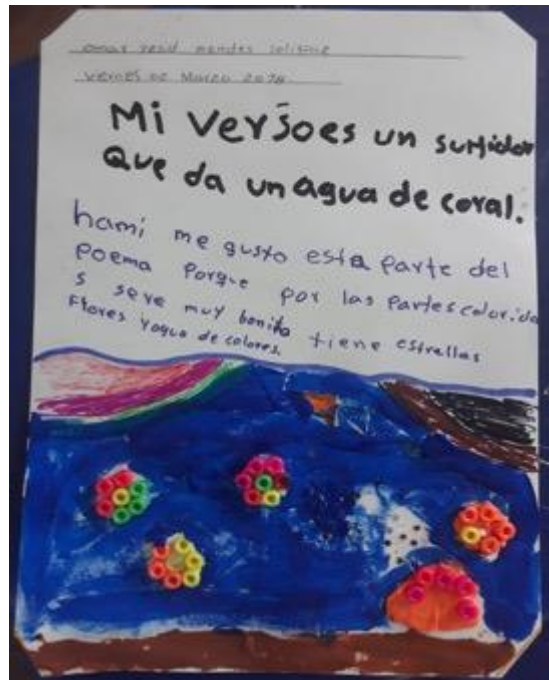 omar yesid mendes
de Marzo
Mi versoes un surtidor
Que da un agua de coral.
hami me gusto esta parte del
poema porque por las partes colorida
s seve muy bonito tiene estrellas
Flores yagua de colores.